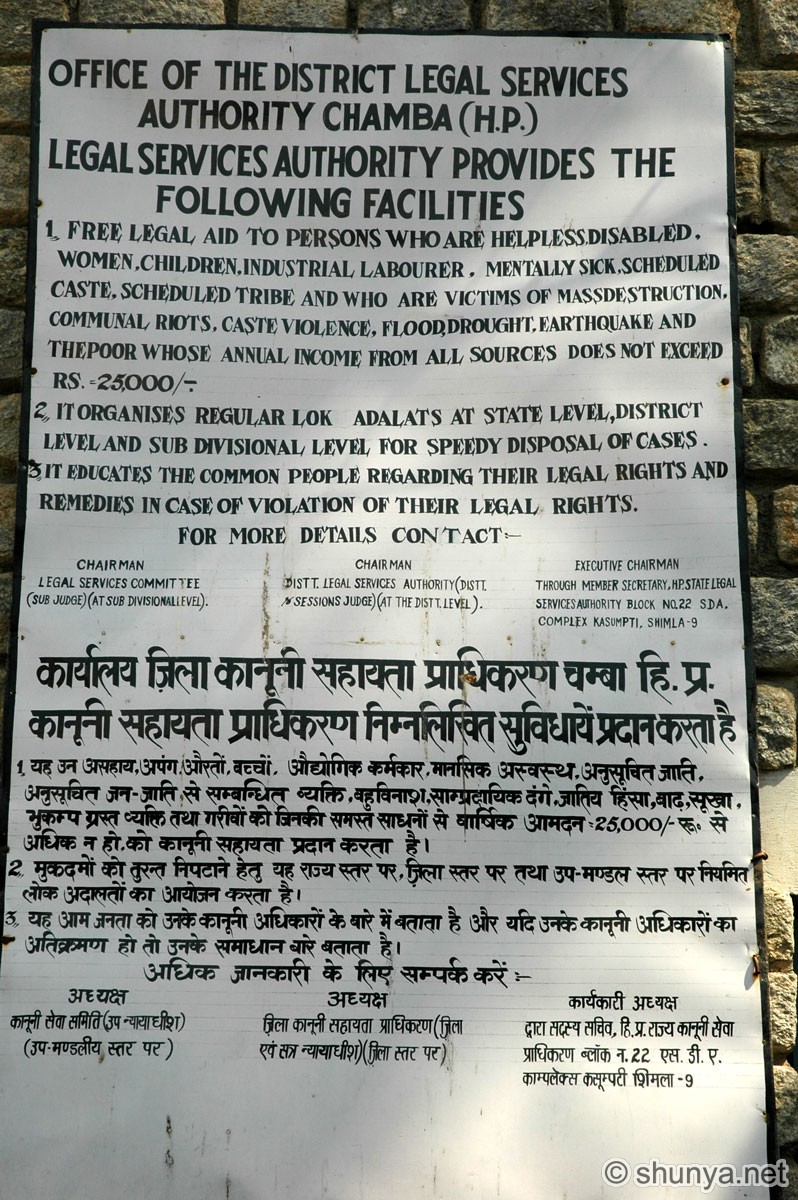 OFFICE OF THE DISTRICT LEGAL SERVICES
AUTHORITY CHAMBA (H.P.)
LEGAL SERVICES AUTHORITY PROVIDES THE
FOLLOWING FACILITIES
1. FREE LEGAL AID TO PERSONS WHO ARE HELPLESS.DISABLED.
WOMEN,CHILDREN,INDUSTRIAL LABOURER. MENTALLY SICK.SCHEDULED
CASTE. SCHEDULED TRIBE AND WHO ARE VICTIMS OF MASSDESTRUCTION.
COMMUNAL RIOTS. CASTE VIOLENCE, FLOOD,DROUGHT.EARTHQUAKE AND
THEPOOR WHOSE ANNUAL INCOME FROM ALL SOURCES DOES NOT EXCEED
RS.=25,000/-
2. IT ORGANISES REGULAR LOK ADALATS AT STATE LEVEL,DISTRICT
LEVEL AND SUB DIVISIONAL LEVEL FOR SPEEDY DISPOSAL OF CASES.
3. IT EDUCATES THE COMMON PEOPLE REGARDING THEIR LEGAL RIGHTS AND
REMEDIES IN CASE OF VIOLATION OF THEIR LEGAL RIGHTS.
FOR MORE DETAILS CONTACT:-
CHAIRMAN
LEGAL SERVICES COMMITTEE
(SUB JUDGE)(AT SUB DIVISIONAL LEVEL).
CHAIRMAN
DISTT. LEGAL SERVICES AUTHORITY(DISTT.
& SESSIONS JUDGE)(AT THE DISTT. LEVEL).
EXECUTIVE CHAIRMAN
THROUGH MEMBER SECRETARY, H.P. STATE LEGAL
SERVICES AUTHORITY BLOCK NO.22 SDA.
COMPLEX KASUMPTI, SHIMLA-9
कार्यालय ज़िला कानूनी सहायता प्राधिकरण चम्बा हि. प्र.
कानूनी सहायता प्राधिकरण निम्नलिखित सुविधायें प्रदान करता है
1. यह उन असहाय,अपंग,औरतों,बच्चों, औद्योगिक कर्मकार,मानसिक अस्वस्थ,अनुसूचित जाति,
अनुसूचित जन-जाति से सम्बन्धित व्यक्ति,बहुविनाश,साम्प्रदायिक दंगे,जातिय हिंसा,बाढ़,सूखा,
भुकम्प ग्रस्त व्यक्ति तथा गरीबों को जिनकी समस्त साधनों से वार्षिक आमदन=25,000/-रू. से
अधिक न हो,को कानूनी सहायता प्रदान करता है।
2. मुकदमों को तुरन्त निपटाने हेतु यह राज्य स्तर पर,ज़िला स्तर पर तथा उप-मण्डल स्तर पर नियमित
लोक अदालतों का आयोजन करता है।
3. यह आम जनता को उनके कानूनी अधिकारों के बारे में बताता है और यदि उनके कानूनी अधिकारों का
अतिक्रमण हो तो उनके समाधान बारे बताता है।
अधिक जानकारी के लिए सम्पर्क करें:-
अध्यक्ष
कानूनी सेवा समिति(उप न्यायाधीश)
(उप-मण्डलीय स्तर पर)
अध्यक्ष
ज़िला कानूनी सहायता प्राधिकरण(ज़िला
एवं सत्र न्यायाधीश)(ज़िला स्तर पर)
कार्यकारी अध्यक्ष
द्वारा सदस्य सचिव, हि.प्र.राज्य कानूनी सेवा
प्राधिकरण ब्लॉक न.22 एस.डी.ए.
काम्पलेक्स कसूम्पटी शिमला-9
© shunya.net